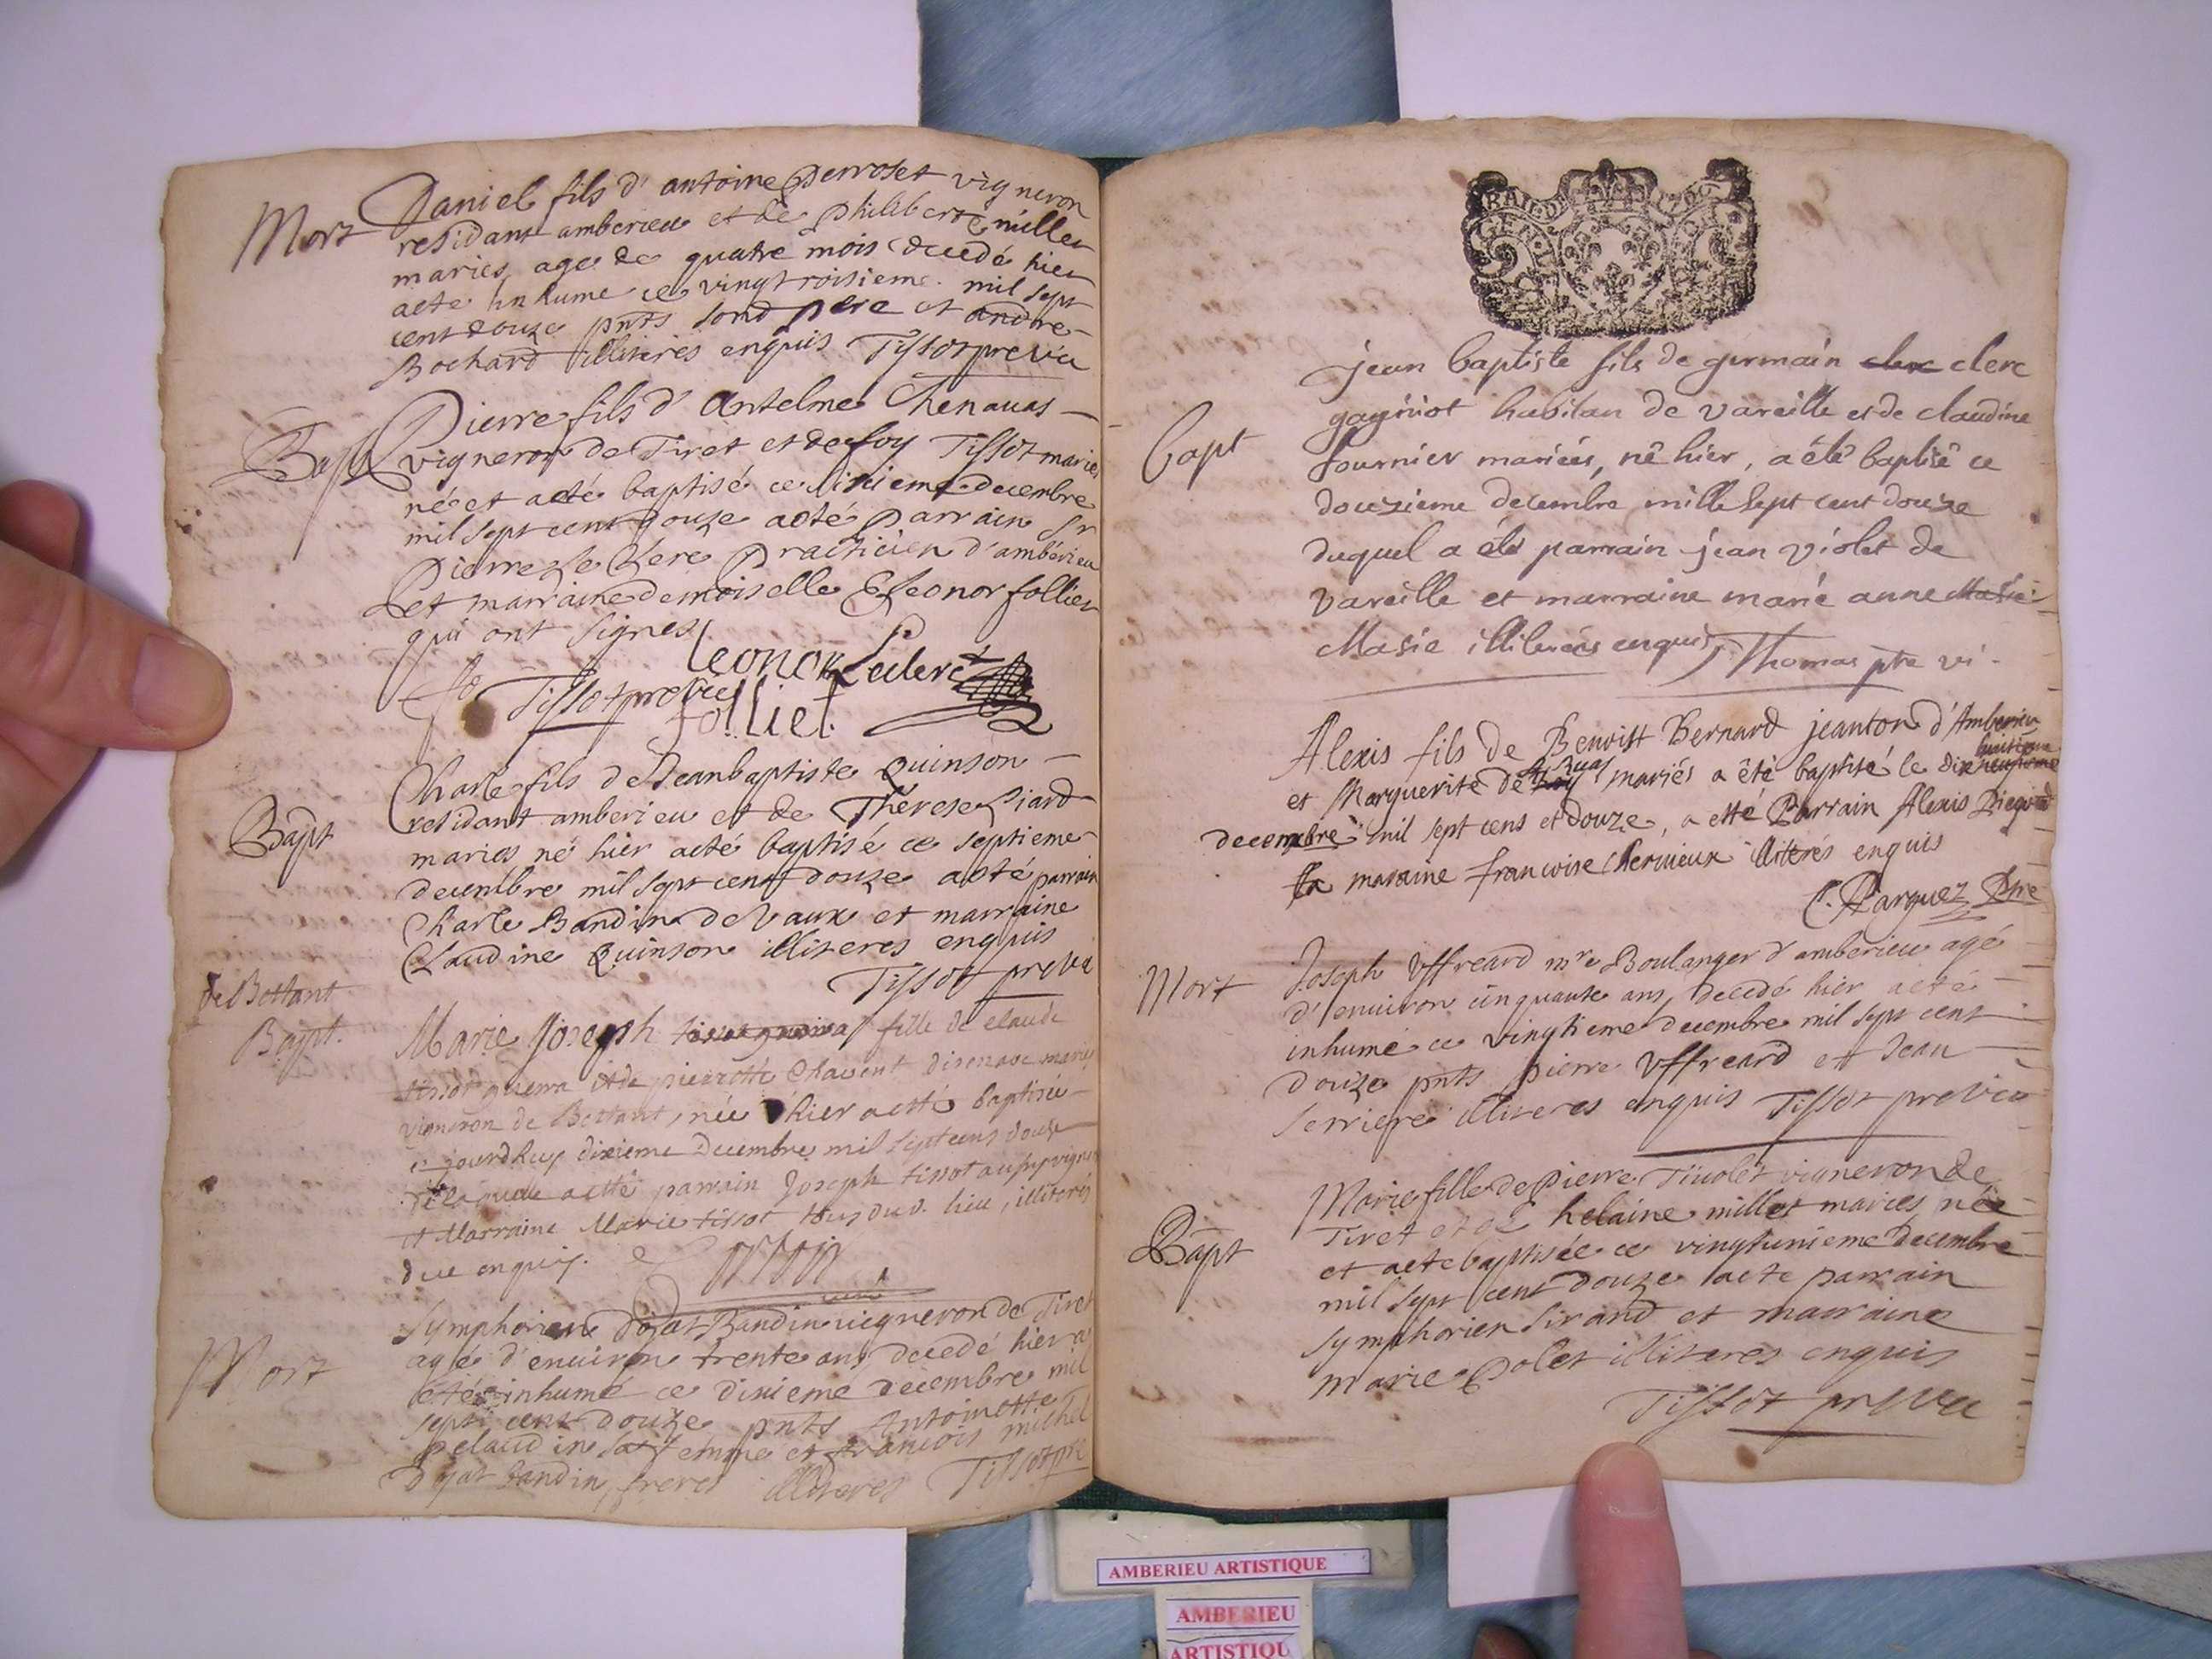 Mort
Daniel fils d'antoine Perroset vigneron
residant amberieu et de philiberte millet
maries age de quatre mois decedé hier
aeté inhume ce vingtroisieme mil sept
cent douze pnts sond pere et andre
Bochard illiteres enquis Tissot pre vic
Bapt
Pierre fils d'Antelme Chenauas
vigneron de Tiret et de foy Tissot maries
né et aeté baptisé ce sixieme decembre
mil sept cent douze aeté parrain Sr
Pierre Le Clerc Praticien d'ambérieu
et marraine demoiselle Eleonor follier
qui ont signes
Leonor Leclerc
Tissot pre vic
folliet
Bapt
Charle fils de Jeanbaptiste Quinson
residant amberieu et de Therese Siard
maries né hier aeté baptisé ce septieme
decembre mil sept cent douze aeté parrain
Charle Bandin de Vaux et marraine
Claudine Quinson illiteres enquis
Tissot pre vic
de Bettant
Bapt.
Marie Joseph fille de claude
tissot guerra et de pierrotte Chavent disenave maries
vigneron de Bettant, née hier aetté baptisée
ce jourdhuy dixieme decembre mil sept cens douze
de laquelle aetté parrain Joseph tissot aussy vigneron
et Marraine Marie tissot tous dud. lieu, illiterés
due enquis.
Mort
Symphorien dojat Bandin uigneron de Tiret
agé d'enuiron trente ans decedé hier a
été inhumé ce dixieme decembre mil
sept cent douze pnts Antoinette
pelaudin sa femme et francois michel
dojat bandin freres illiteres Tissot pre
TRAL. D. 1706
GEN.
Bapt
jean baptiste fils de germain clerc clerc
gagniot habitan de vareille et de claudine
fournier mariés, né hier, a été baptisé ce
douzieme decembre mille sept cent douze
duquel a été parrain jean violet de
vareille et marraine marie anne Masie
Masie illiterés enquis, Thomas ptre vi.
Alexis fils de Benoist Bernard jeanton d'Amberieu
et Marguerite de mariés a êté baptisé le Dix huitiême
decembre mil sept cens et douze, a etté Parrain Alexis
la maraine francoise Chervieux illiterés enquis
C. Marquez Ptre
Mort
Joseph Uffreard mre Boulanger d'amberieu agé
d'enuiron cinquante ans, decedé hier aeté
inhumé ce vingtieme decembre mil sept cent
douze pnts pierre Uffreard et Jean
serriere illiteres enquis Tissot pre vic
Bapt
Marie fille de Pierre Tiuolet vigneron de
Tiret et de helaine millet maries née
et aeté baptisée ce vingtunieme decembre
mil sept cent douze aeté parrain
symphorien sirand et marraine
marie Polet illiteres enquis
Tissot pre vic
AMBERIEU ARTISTIQUE
AMBERIEU
ARTISTIQU